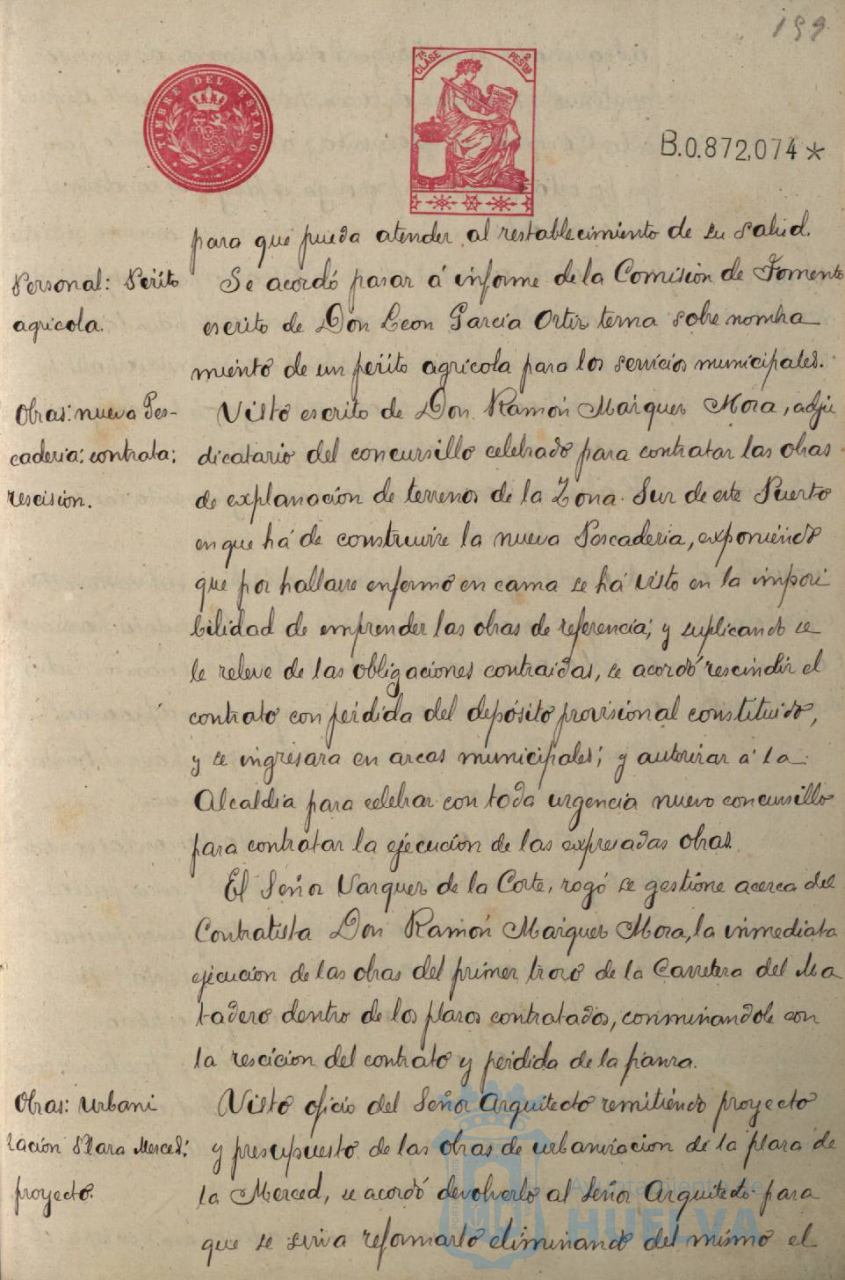 159
TIMBRE DEL ESTADO
7ª CLASE PESTAS
B.0.872,074*
para que pueda atender al restablecimiento de su salud.
Personal: Perito
agricola.
Se acordó pasar á informe de la Comisión de Fomento
escrito de Don Leon Garcia Ortiz terna sobre nombra
miento de un perito agricola para los servicios municipales.
Obras: nueva Pes-
caderia: contrata:
rescision.
Visto escrito de Don Ramón Marquez Mora, adju
dicatario del concursillo celebrado para contratar las obras
de explanacion de terrenos de la Zona Sur de este Puerto
en que há de construirse la nueva Pescaderia, exponiendo
que por hallarse enfermo en cama se há visto en la imposi
bilidad de emprender las obras de referencia; y suplicando se
le releve de las obligaciones contraidas, se acordó rescindir el
contrato con pérdida del depósito provisional constituido,
y se ingresara en arcas municipales; y autorizar a la
Alcaldia para celebrar con toda urgencia nuevo concursillo
para contratar la ejecucion de las expresadas obras.
El Señor Vazquez de la Corte, rogó se gestione acerca del
Contratista Don Ramón Marquez Mora, la inmediata
ejecucion de las obras del primer trozo de la Carretera del Ma
tadero dentro de los plazos contratados, conminandole con
la rescicion del contrato y perdida de la fianza.
Obras: Urbani
zación Plaza Merced:
proyecto.
Visto oficio del Señor Arquitecto remitiendo proyecto
y presupuesto de las obras de urbanizacion de la plaza de
la Merced, se acordó devolverlo al Señor Arquitecto para
que se sirva reformarlo eliminando del mismo el
Ayuntamiento de
HUELVA